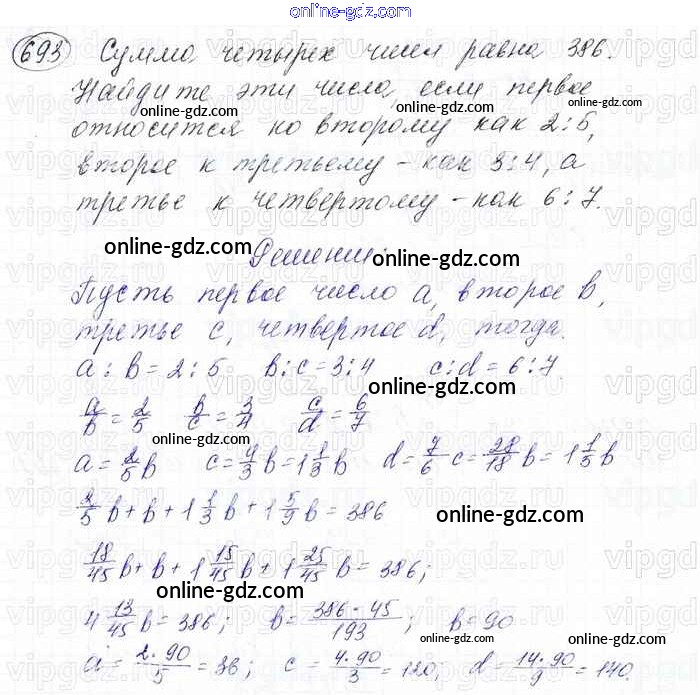 online-gdz.com
693 Сумма четырех чисел равна 386.
Найдите эти числа, если первое
относится ко второму как 2:5,
второе к третьему - как 3:4, а
третье к четвертому - как 6:7.
online-gdz.com
Решение:
online-gdz.com
Пусть первое число a, второе b,
третье c, четвертое d, тогда.
a:b=2:5 b:c=3:4 c:d=6:7
online-gdz.com
a/b=2/5 b/c=3/4 c/d=6/7
online-gdz.com
a=2/5b c=4/3b=1 1/3b d=7/6c=28/18b=1 5/9b
2/5b+b+1 1/3b+1 5/9b=386
online-gdz.com
18/45b+b+1 15/45b+1 25/45b=386;
online-gdz.com
4 13/45b=386; b=386·45/193; b=90
online-gdz.com
a=2·90/5=36; c=4·90/3=120; d=14·90/9=140.
online-gdz.com